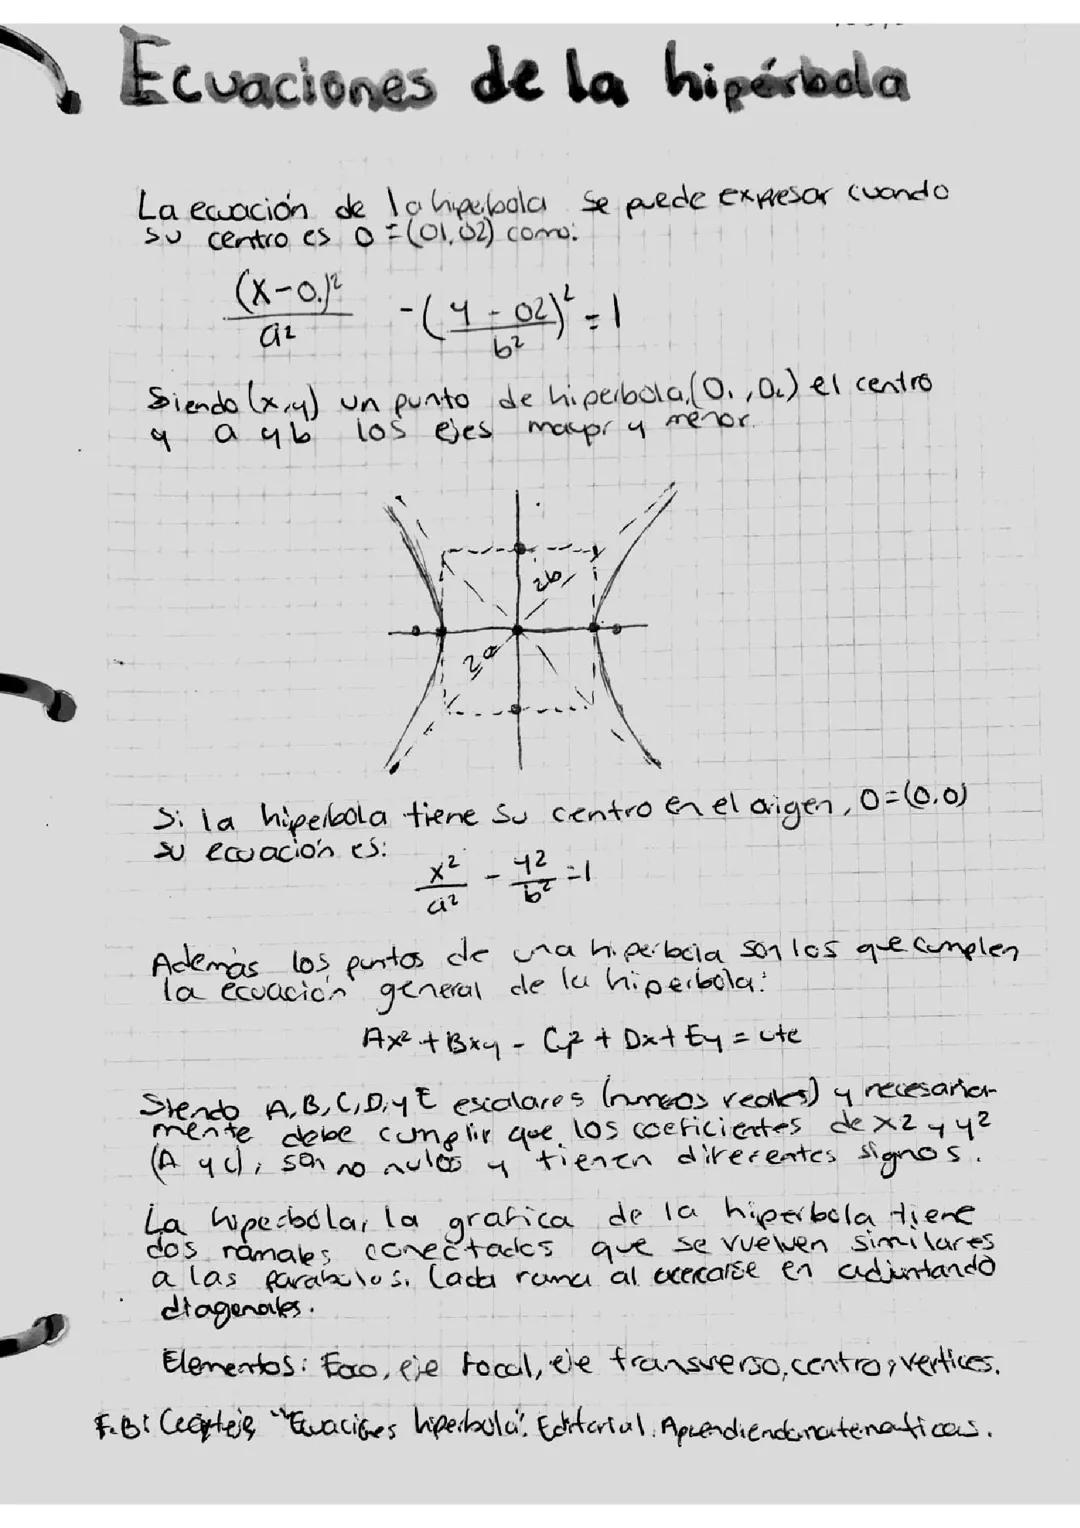 Ecuaciones de la hipérbola
La ecuación de la hiperbola se puede expresar cuando
su centro es O = (O1,O2) como:
(x-O1)²/a² - (y - O2)²/b² = 1
Siendo (x,y) un punto de hiperbola, (O1, O2) el centro
y a y b los ejes mayor y menor.
2b
2a
Si la hiperbola tiene su centro en el origen, O=(0,0)
su ecuación es:
x²/a² - y²/b² = 1
Además los puntos de una hiperbola son los que cumplen
la ecuación general de la hiperbola:
Ax² + Bxy - Cy² + Dx + Ey = cte
Siendo A, B, C, D, y E escalares (numeos reales) y necesaria-
mente debe cumplir que los coeficientes de x2 y y²
(A y C), son no nulos y tienen diferentes signos.
La hiperbola, la grafica de la hiperbola tiene
dos ramales conectados que se vuelven similares
a las parabolas. Cada rama al acercarse en adjuntando
diagonales.
Elementos: Foco, eje focal, eje transverso, centro, vertices.
F.B: "Ecuaciones hiperbola". Editorial. Aprendiendomatematicas.